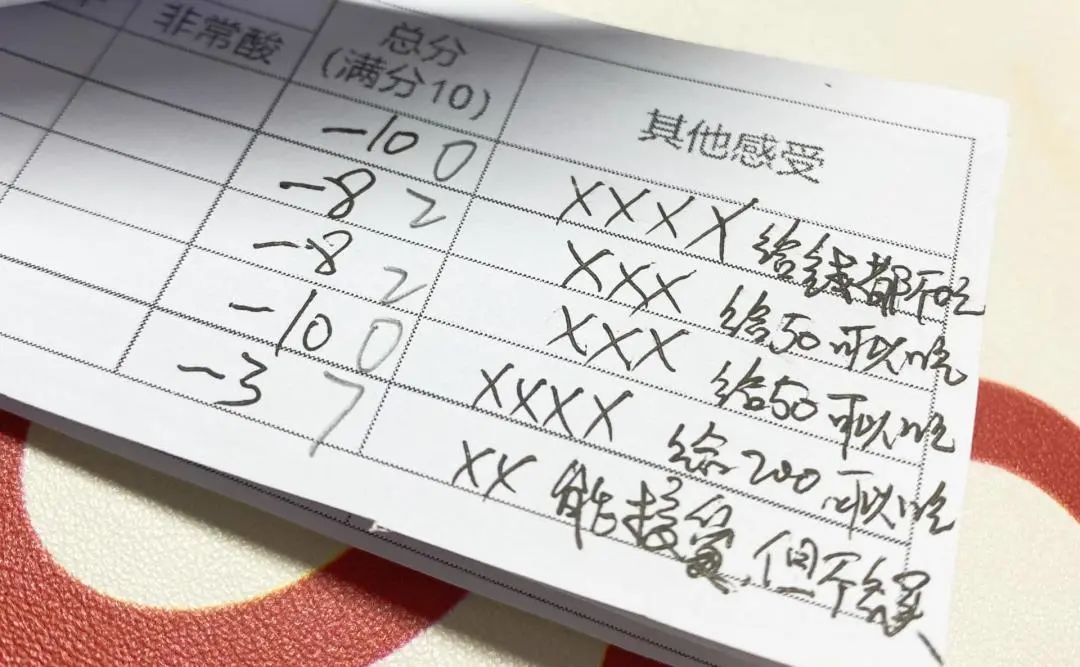 非常酸
总分
(满分10)
其他感受
-10 0 XXXX 给钱都不吃
-8 2 XXX 给50可以吃
-8 2 XXX 给50可以吃
-10 0 XXXX 给200可以吃
-3 7 XX 能接受,但不